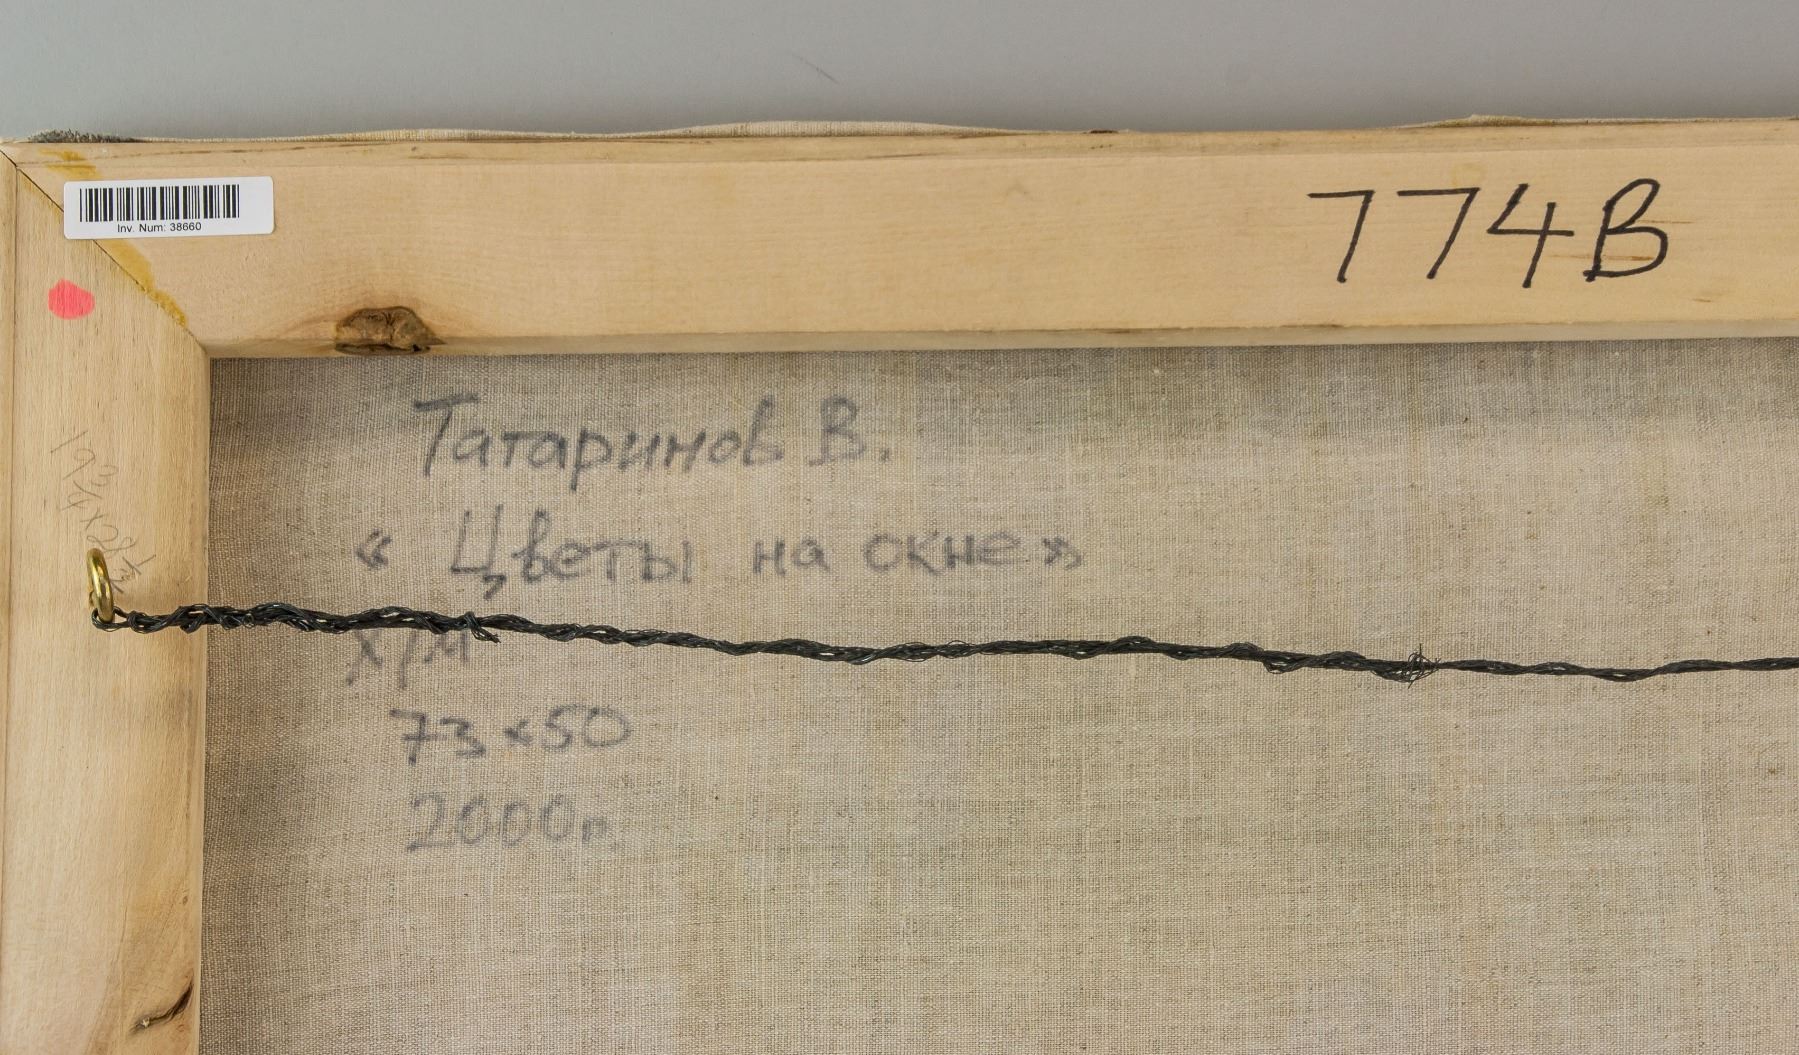 Inv. Num: 38660
774B
Татаринов В.
« Цветы на окне»
х/м
73x50
2000г.